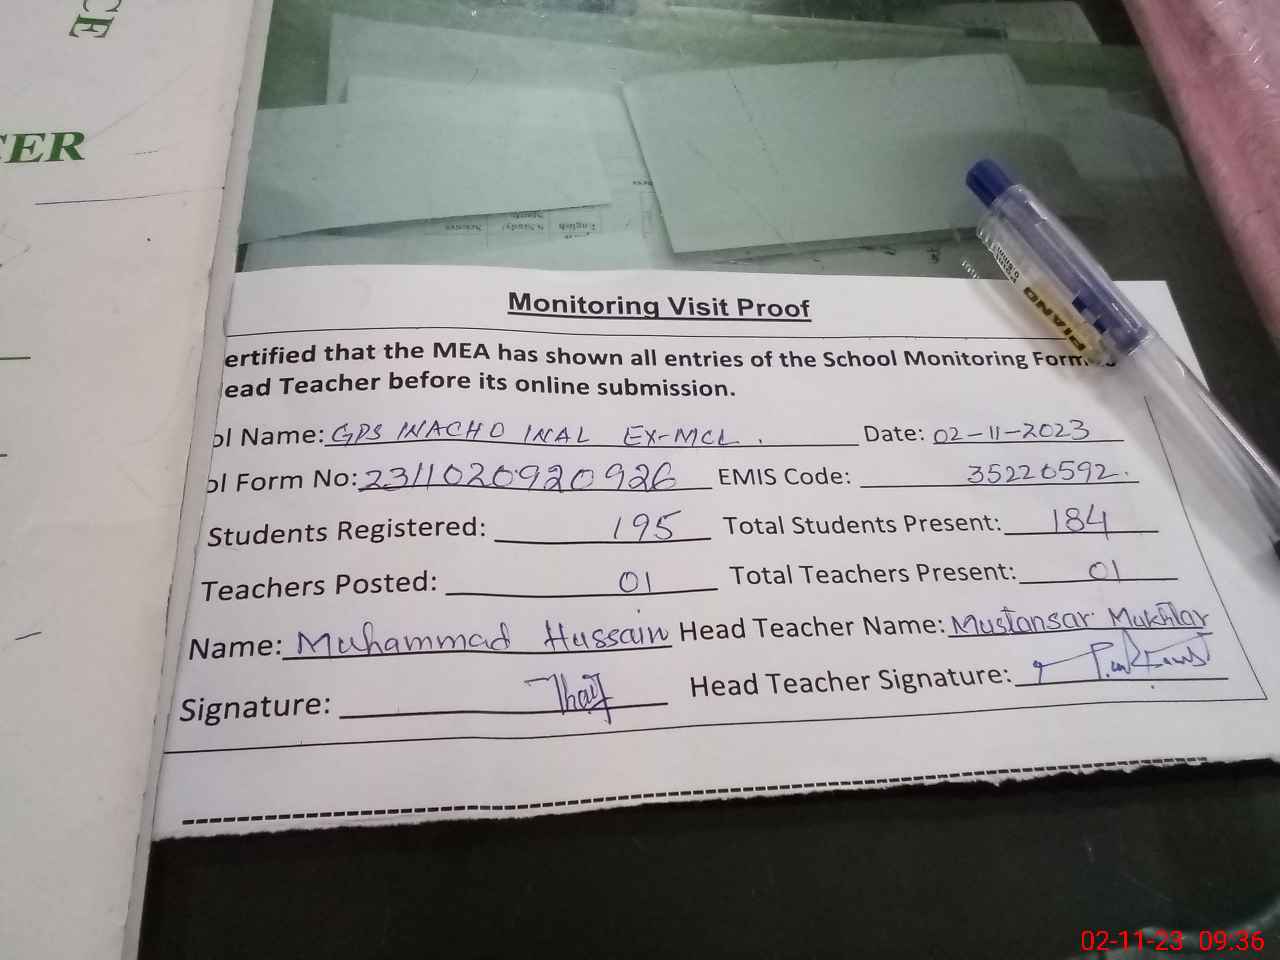 CE
CER
English
S.Study/
Science
PIANO
Monitoring Visit Proof
ertified that the MEA has shown all entries of the School Monitoring Form
ead Teacher before its online submission.
ol Name: GPS INACHO INAL EX-MCL. Date: 02-11-2023
ol Form No: 2311020920926 EMIS Code: 35220592.
Students Registered: 195 Total Students Present: 184
Teachers Posted: 01 Total Teachers Present: 01
Name: Muhammad Hussain Head Teacher Name: Mustansar Mukhtar
Signature: Head Teacher Signature:
02-11-23 09.36